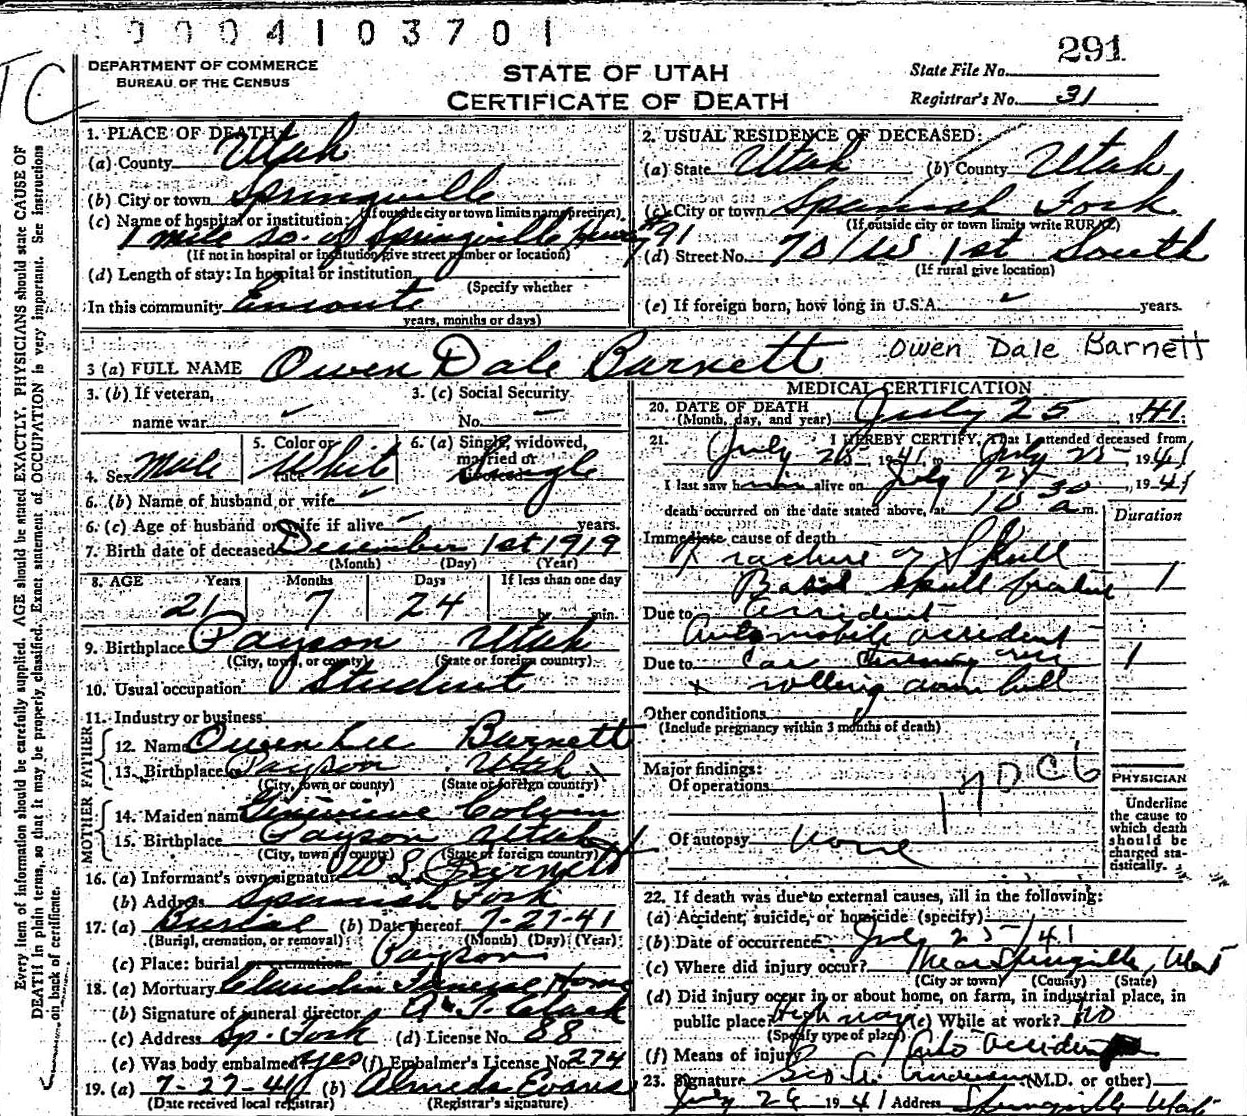 0 0 0 4 1 0 3 7 0 1
291
DEPARTMENT OF COMMERCE
BUREAU OF THE CENSUS
STATE OF UTAH
CERTIFICATE OF DEATH
State File No.
Registrar's No. 31
Every item of information should be carefully supplied. AGE should be stated EXACTLY. PHYSICIANS should state CAUSE OF
DEATH in plain terms, so that it may be properly classified. Exact statement of OCCUPATION is very important. See instructions
on back of certificate.
1. PLACE OF DEATH
(a) County Utah
(b) City or town Springville
(If outside city or town limits name precinct)
(c) Name of hospital or institution:
1 mile so. of Springville #91
(If not in hospital or institution give street number or location)
(d) Length of stay: In hospital or institution
(Specify whether
In this community Enroute
years, months or days)
2. USUAL RESIDENCE OF DECEASED:
(a) State Utah (b) County Utah
(c) City or town Spanish Fork
(If outside city or town limits write RURAL)
(d) Street No. 70 W 1st South
(If rural give location)
(e) If foreign born, how long in U.S.A. years.
3 (a) FULL NAME Owen Dale Barnett Owen Dale Barnett
3. (b) If veteran, name war
3. (c) Social Security No.
4. Sex Male
5. Color or race White
6. (a) Single, widowed, married or divorced Single
6. (b) Name of husband or wife
6. (c) Age of husband or wife if alive years.
7. Birth date of deceased December 1st 1919
(Month) (Day) (Year)
8. AGE Years Months Days If less than one day
21 7 24 hr. min.
9. Birthplace Payson Utah
(City, town, or county) (State or foreign country)
10. Usual occupation Student
11. Industry or business
FATHER
12. Name Owen Lee Barnett
13. Birthplace Payson Utah
(City, town or county) (State or foreign country)
MOTHER
14. Maiden name Genevieve Colvin
15. Birthplace Payson Utah
(City, town or county) (State of foreign country)
16. (a) Informant's own signature W L Barnett
(b) Address Spanish Fork
17. (a) Burial (b) Date thereof 7-27-41
(Burial, cremation, or removal) (Month) (Day) (Year)
(c) Place: burial or cremation Payson
18. (a) Mortuary Claudin Funeral Home
(b) Signature of funeral director A. Y. Clark
(c) Address Sp. Fork (d) License No. 88
(e) Was body embalmed yes (f) Embalmer's License No. 274
19. (a) 7-27-41 (b) Almeda Evans
(Date received local registrar) (Registrar's signature)
MEDICAL CERTIFICATION
20. DATE OF DEATH July 25 1941
(Month, day, and year)
21. I HEREBY CERTIFY, That I attended deceased from
July 25 1941 to July 25 1941
I last saw him alive on July 25, 1941
death occurred on the date stated above, at 10 30 a m.
Duration
Immediate cause of death
Fracture of Skull
Basal skull fracture 1
Due to accident
Automobile accident
Due to car 1
rolling down hill
Other conditions
(Include pregnancy within 3 months of death)
Major findings:
Of operations
170 c 6
Of autopsy None
PHYSICIAN
Underline
the cause to
which death
should be
charged sta-
tistically.
22. If death was due to external causes, fill in the following:
(a) Accident, suicide, or homicide (specify)
(b) Date of occurrence July 25/41
(c) Where did injury occur? Near Springville, Utah
(City or town) (County) (State)
(d) Did injury occur in or about home, on farm, in industrial place, in
public place? Highway (e) While at work? No
(Specify type of place)
(f) Means of injury Auto accident
23. Signature Geo A. Anderson (M.D. or other)
July 26 1941 Address Springville Utah